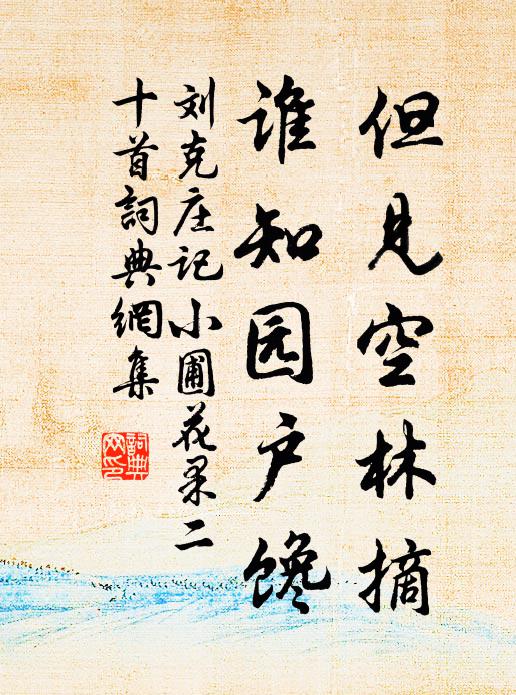 但见空林摘
谁知园户馋
刘克庄记小圃花果二
十首詞典網集
詞典
网印